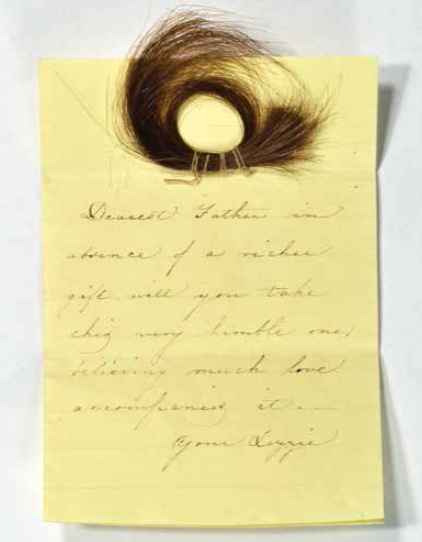 Dearest Father in
absence of a richer
gift will you take
this very humble one;
believing much love
accompanies it —
Your Lizzie